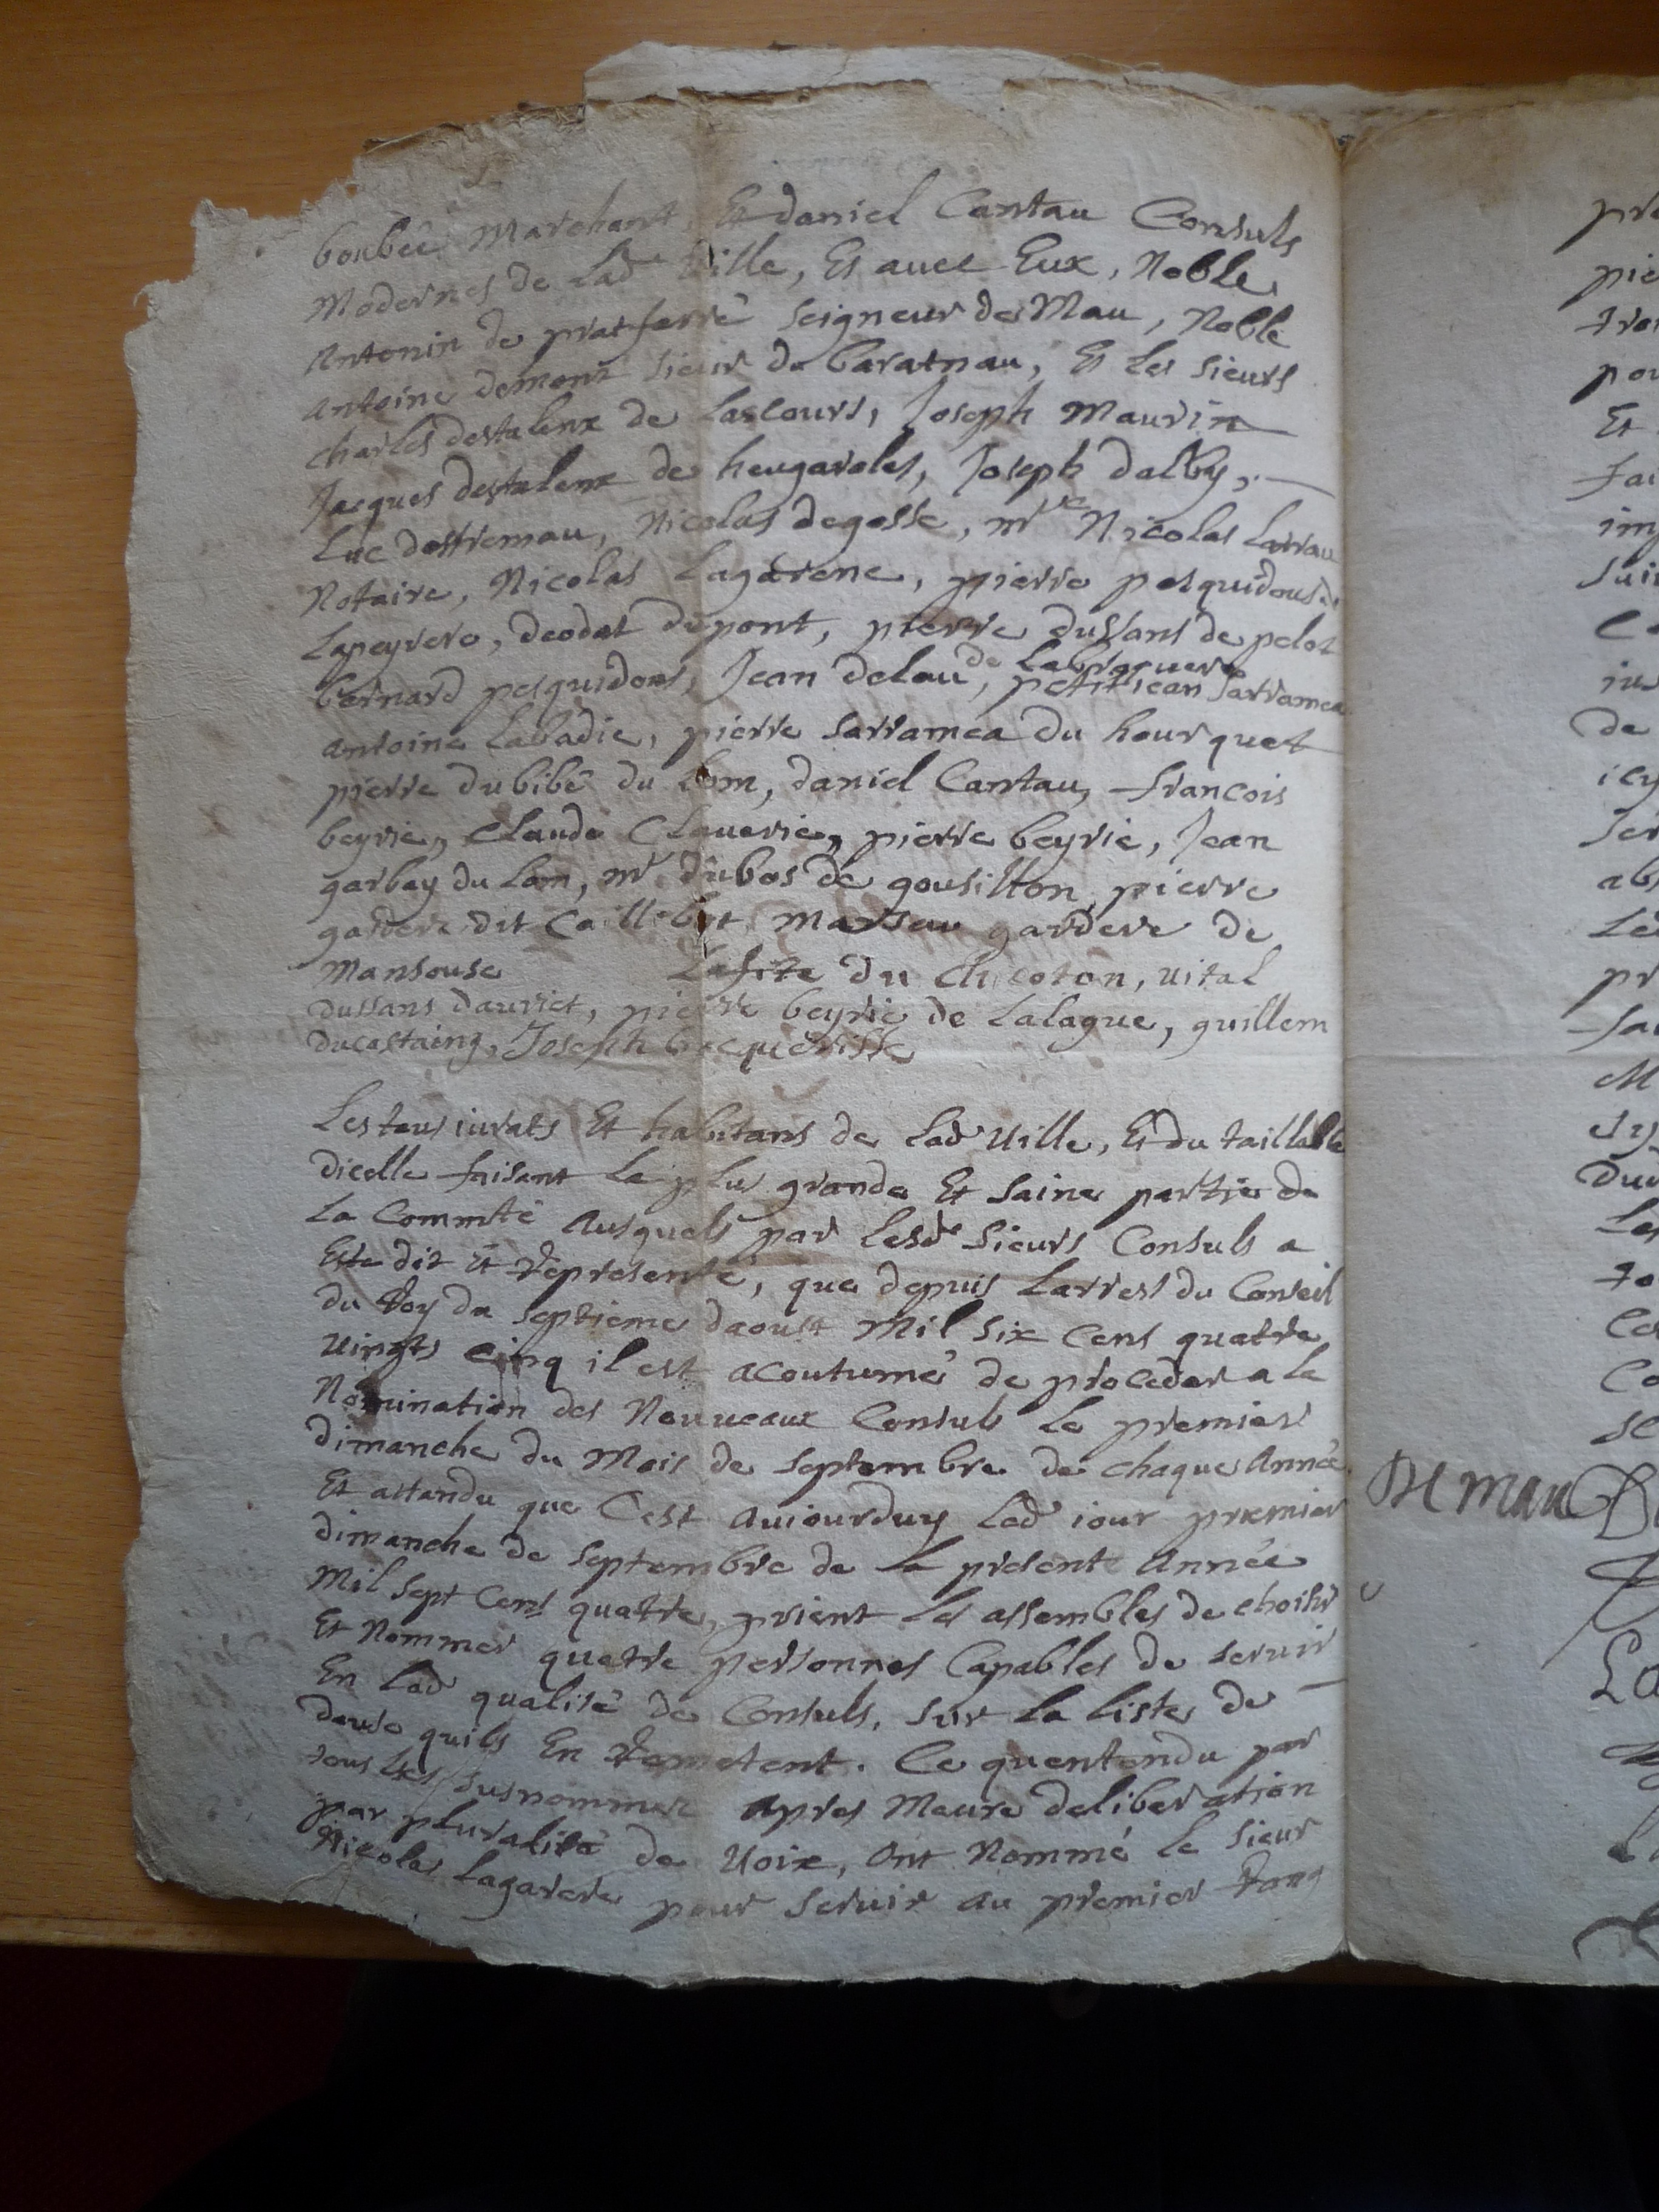 boubée Marchant, Et daniel Cantau Consuls
Modernes de Lade Ville, Et avec Eux, Noble
Antonin de pratferré Seigneur de Mau, Noble
Antoine demont Sieur de baratnau, Et Les Sieurs
charles destalenx de Lascours, Joseph Maurin
Jacques destalenx de heugaroles, Joseph dalby,
Luc dostremau, Nicolas degosse, mre Nicolas Larrau
Notaire, Nicolas Lagarene, pierre pesquidous de
Lapeyrere, deodat dupont, pierre dussans de pelot
bernard pesquidous, Jean delau, de Labroquere petit jean Sarramea
Antoine Labadie, pierre Sarramea du hourquet
pierre dubibé du Lom, daniel Cantau, francois
beyrie, Claude Claverie, pierre beyrie, Jean
garbay du Lom, mr dubos de gousilton, pierre
gardere dit Caillebet gardere de
Mansouse Lafite du Chicoton, vital
Dussans dauriet, pierre beyrie de Lalague, guillem
Ducastaing, Joseph
Les tous jurats Et habitans de Lade Ville, Et du taillable
dicelle faisant La plus grande Et Saine partie de
La Commté Ausquels par Lesds Sieurs Consuls a
Este dit Et Represente, que depuis Larrest du Conseil
du Roy du Septieme daoust Mil Six Cens quatre
vingts cinq il est acoutumé de proceder a la
Nomination des Nouveaux Consuls Le premier
dimanche du Mois de Septembre de chaque Année
Et attandu que C'est aujourduy Lad jour premier
dimanche de Septembre de La presente Année
Mil Sept Cens quatre, prient Les assembles de choisir
Et Nommer quatre personnes Capables de Servir
En Lad qualité de Consuls, Sur La Liste de
douse quils En Remetent. Ce quentendu par
tous Les Susnommez Apres Meure deliberation
par pluralité de Voix, Ont Nommé le Sieur
Nicolas Lagarene pour Servir au premier Rang